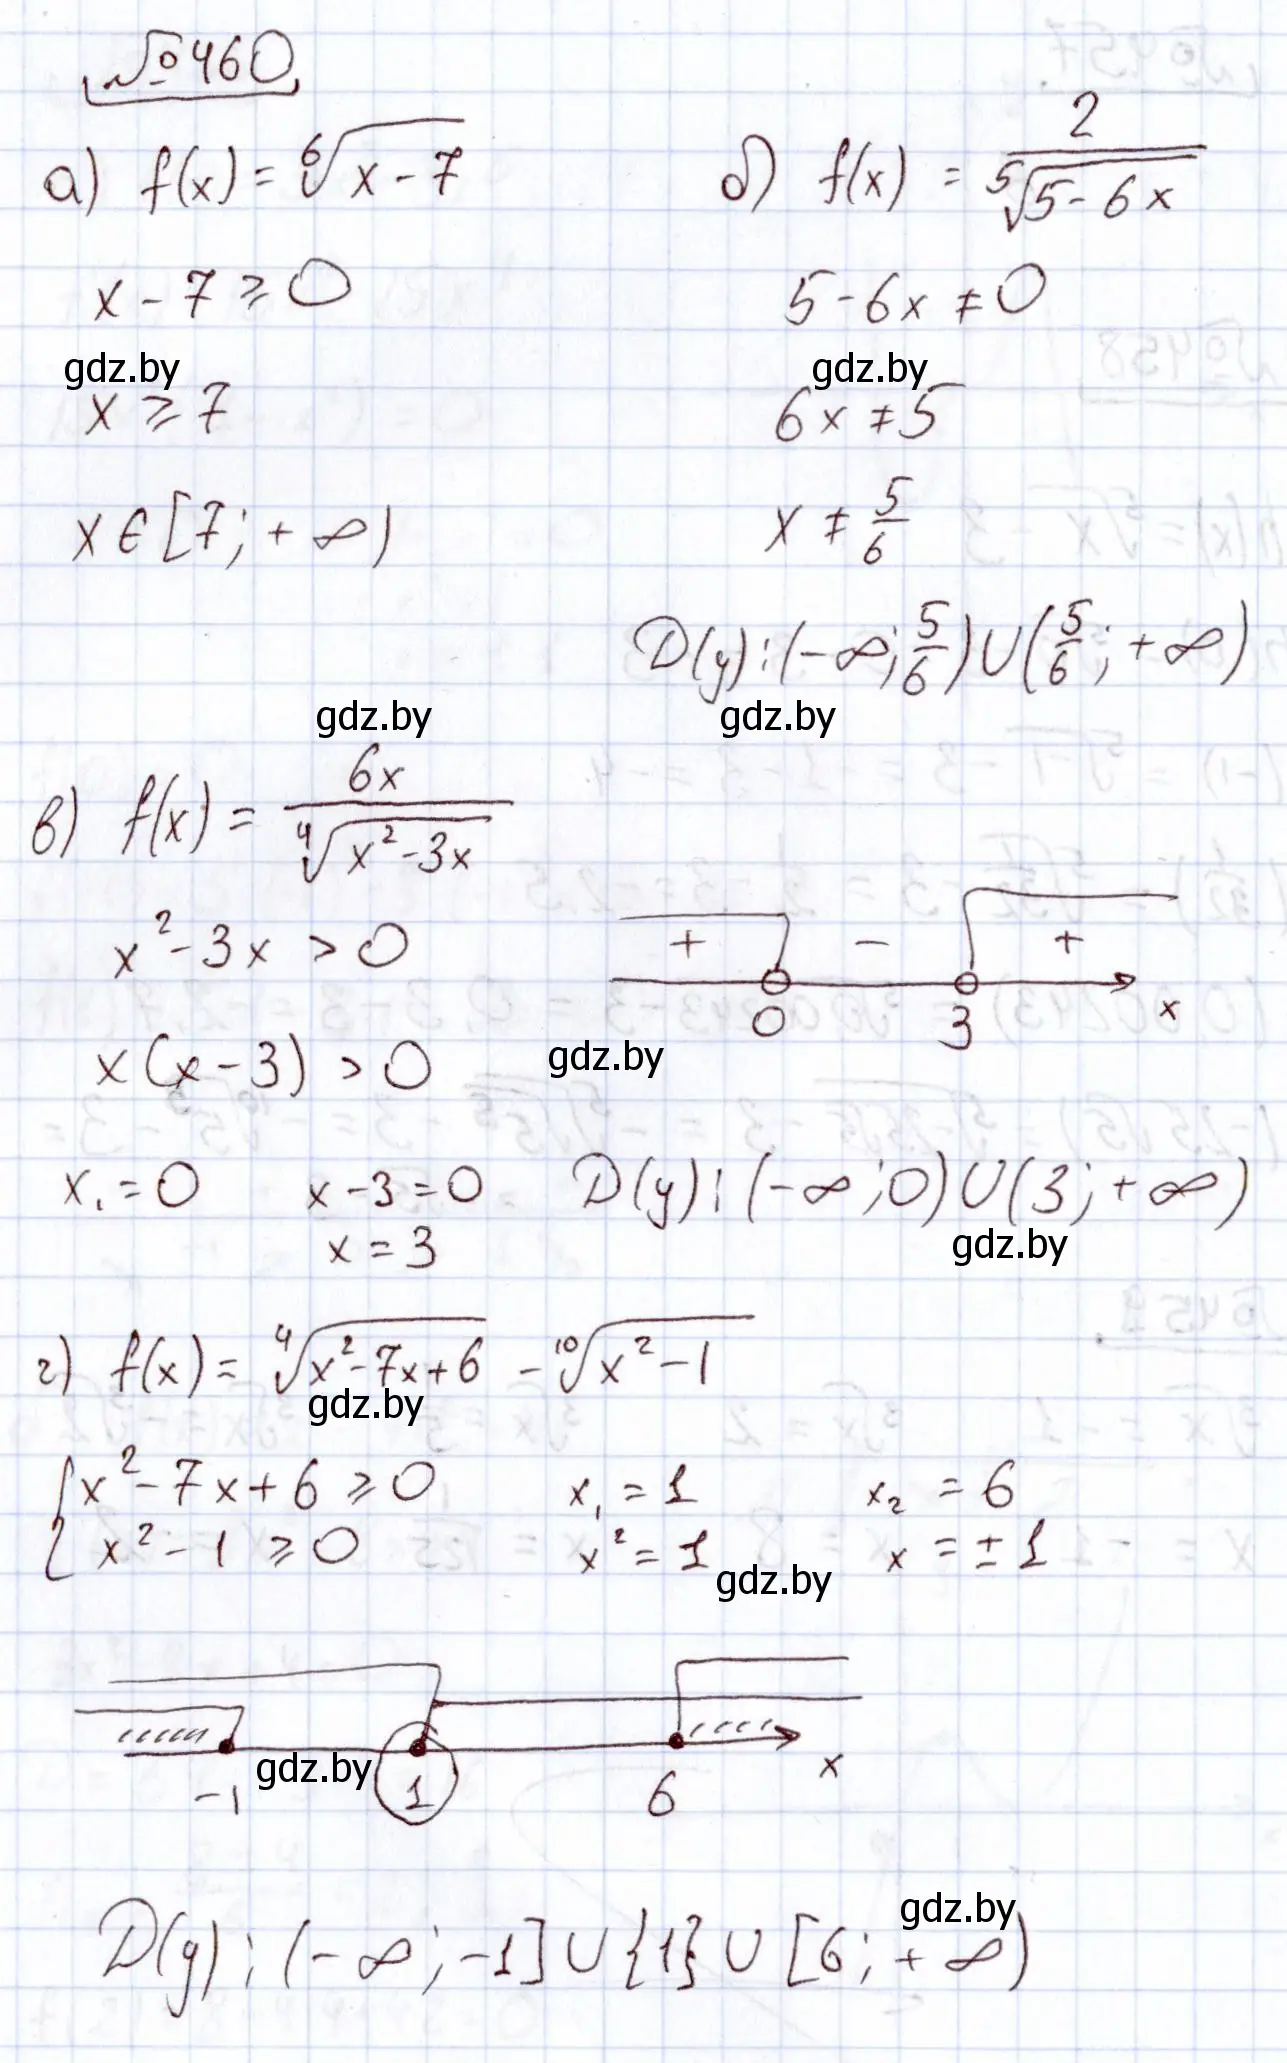 №460
а) f(x) = ⁶√(x - 7)
x - 7 ⩾ 0
gdz.by
x ⩾ 7
x ∈ [7; + ∞)
б) f(x) = 2/⁵√(5 - 6x)
5 - 6x ≠ 0
gdz.by
6x ≠ 5
x ≠ 5/6
D(y): (-∞; 5/6) ∪ (5/6; +∞)
gdz.by gdz.by
в) f(x) = 6x/⁴√(x² - 3x)
x² - 3x > 0
+ - +
0 3 x
gdz.by
x(x - 3) > 0
x₁ = 0 x - 3 = 0
x = 3
D(y): (-∞; 0) ∪ (3; +∞)
gdz.by
г) f(x) = ⁴√(x² - 7x + 6) - ¹⁰√(x² - 1)
gdz.by
{ x² - 7x + 6 ⩾ 0 x₁ = 1 x₂ = 6
x² - 1 ⩾ 0 x² = 1 x = ± 1
gdz.by
-1 gdz.by 1 6 x
gdz.by
D(y): (-∞; -1] ∪ {1} ∪ [6; +∞)